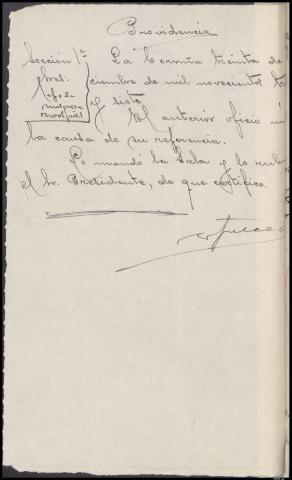 Providencia
Sección 1ª La Coruña treinta de
ciembre de mil novecientos tr
y siete
El anterior oficio un
la causa de su referencia.
Lo mandó la Sala y lo rubr
el Sr. Presidente, de que certifico.